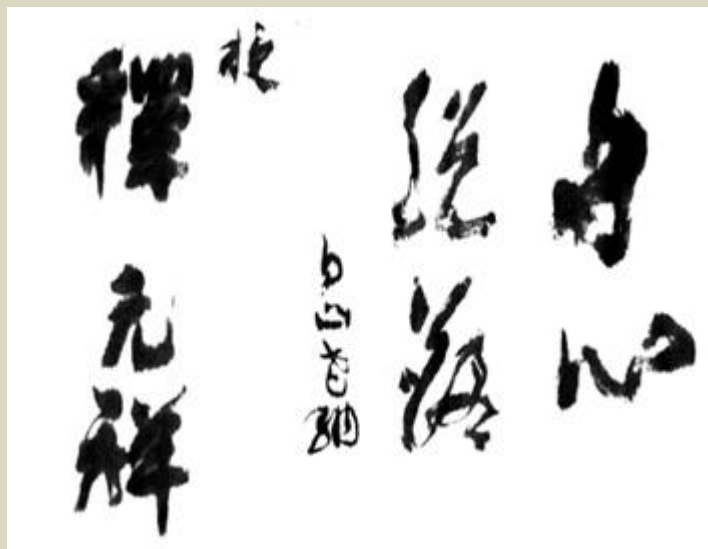 身心
脱落
白山老衲
授
釋元祥